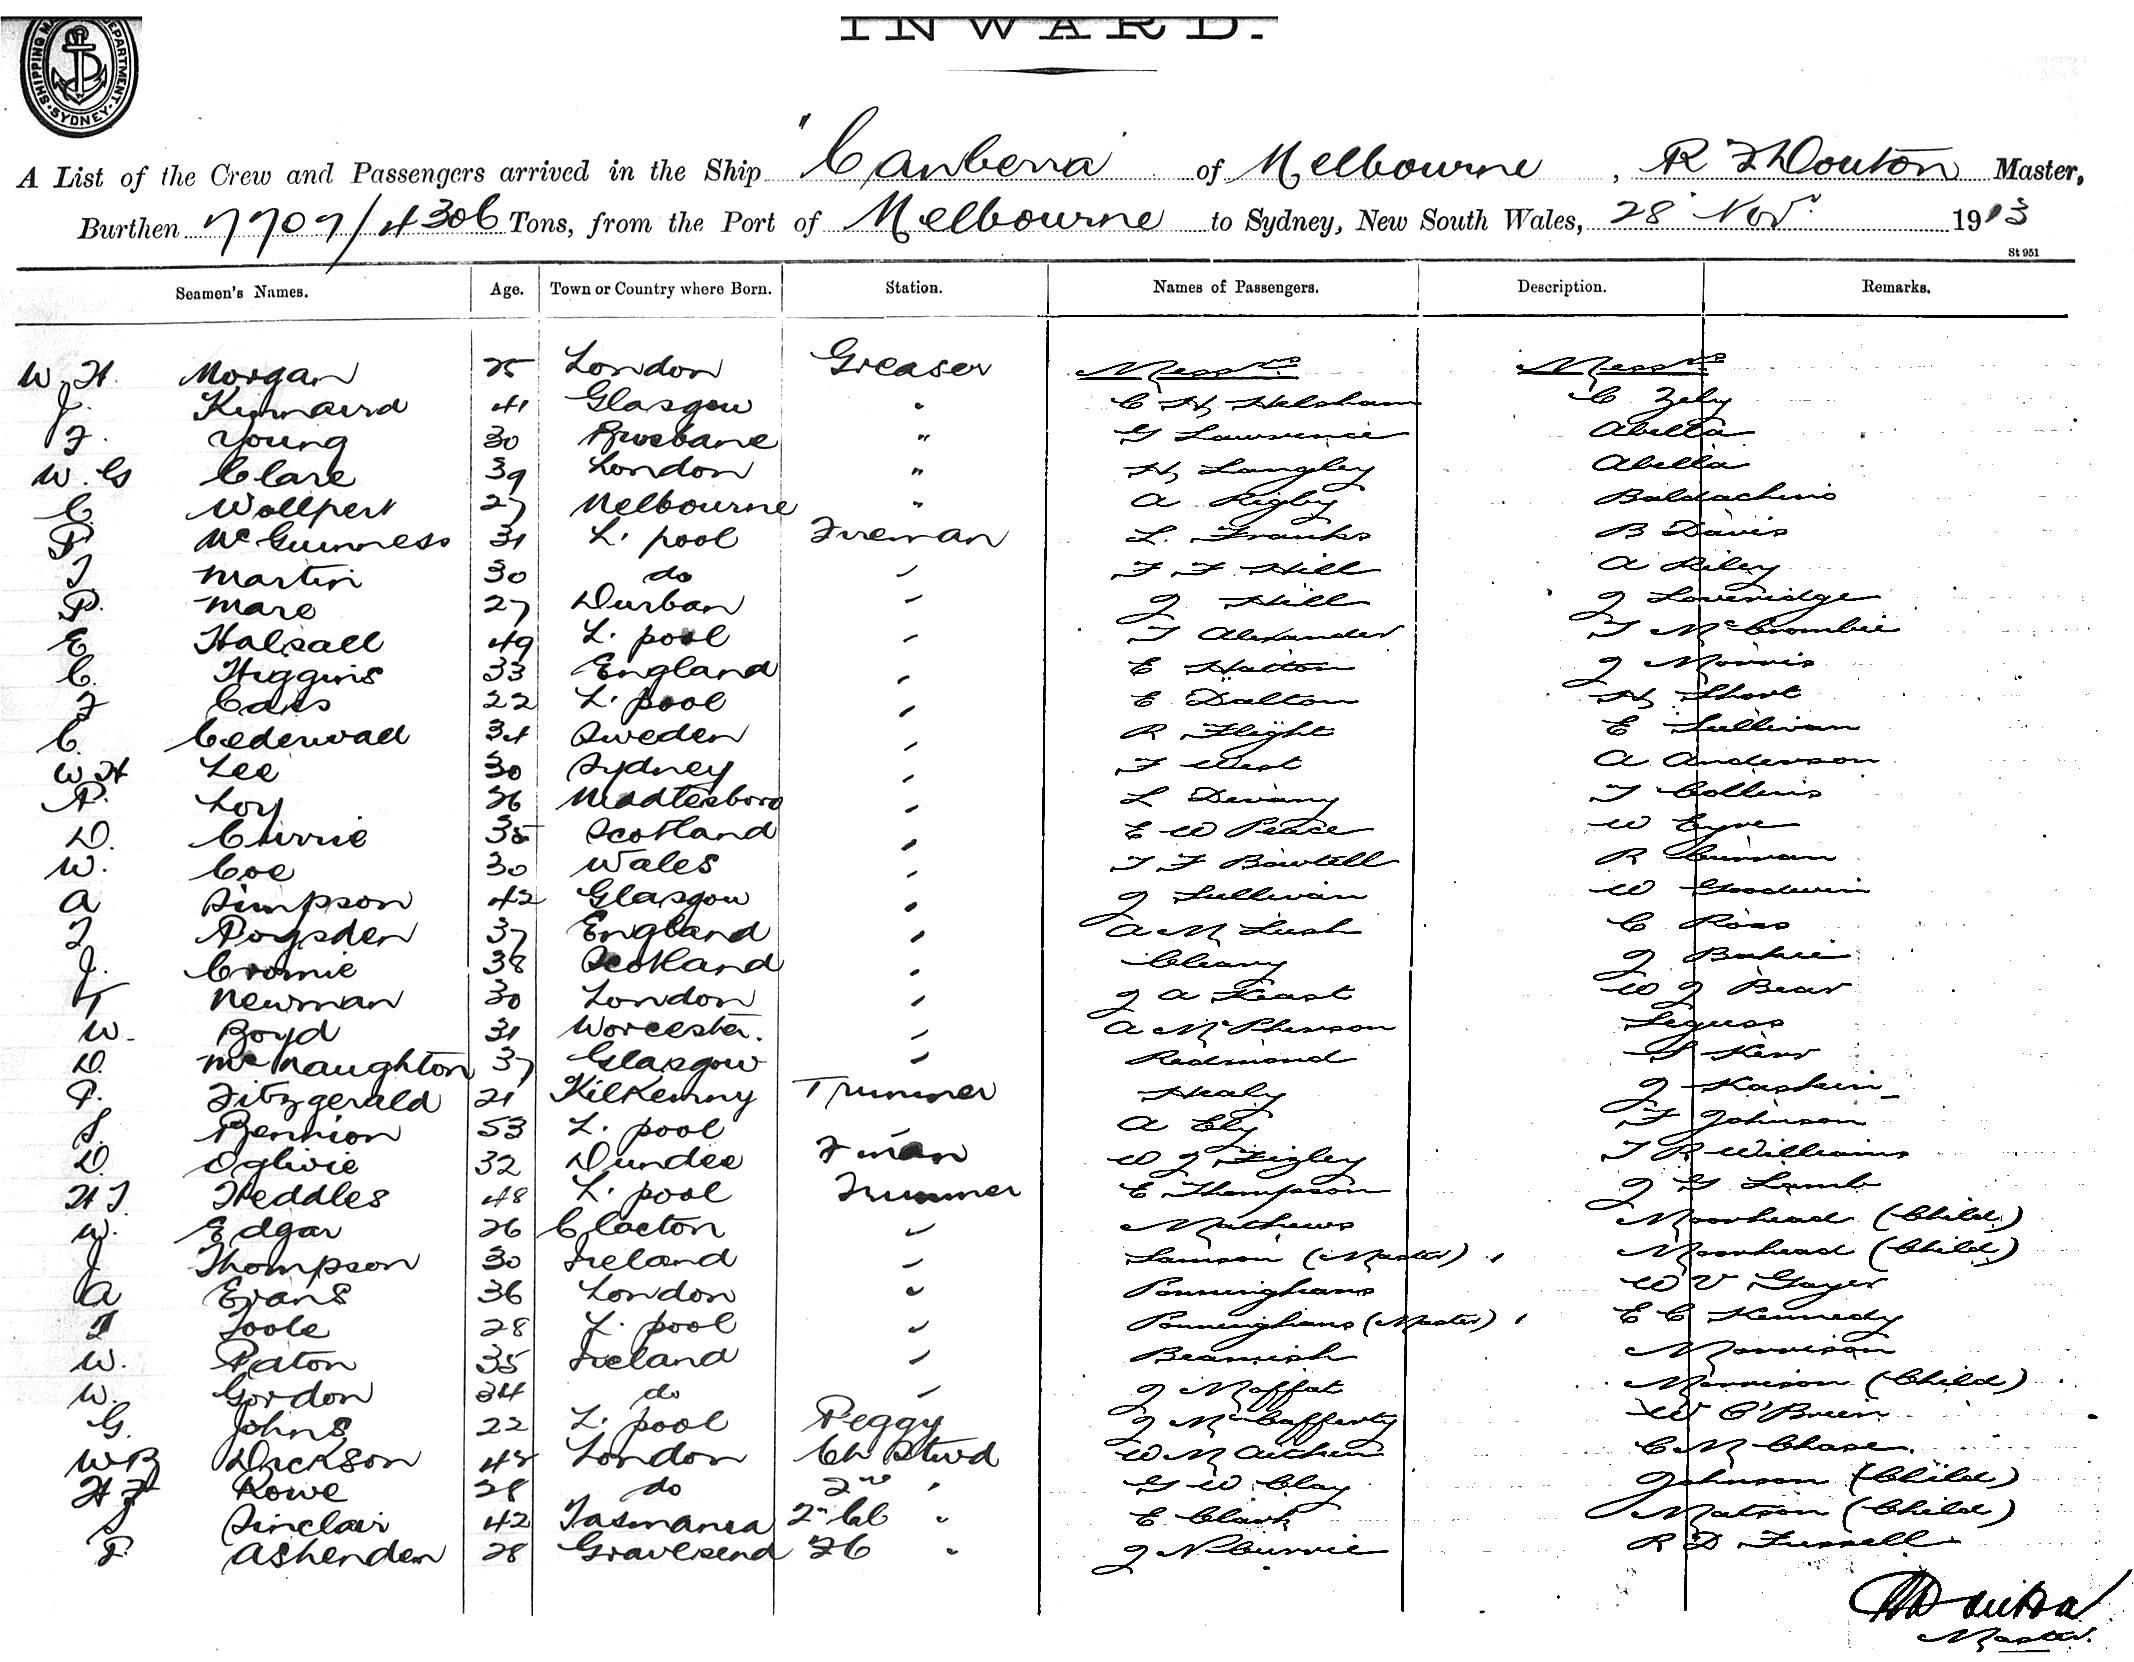 INWARD.
SHIPPING DEPARTMENT SYDNEY
A List of the Crew and Passengers arrived in the Ship "Canberra" of Melbourne, R J Douton Master,
Burthen 7707/4306 Tons, from the Port of Melbourne to Sydney, New South Wales, 28 Nov. 1913
St 951
Seamen's Names. Age. Town or Country where Born. Station. Names of Passengers. Description. Remarks.
W. H. Morgan 25 London Greaser Messrs Messrs
J. Kinnaird 41 Glasgow " C H Helsham C Zely
F. Young 30 Brisbane " G Lawrence Abella
W. G Clare 39 London " H Langley Abella
C. Wollpert 27 Melbourne " A Rigby Baldachino
P. McGuinness 31 L. pool Fireman L. Franks B Davis
J Martin 30 do " F F Hill A Riley
P. Mare 27 Durban " J Hill J Loveridge
E Halsall 49 L. pool " T Alexander T McCrombie
C. Higgins 33 England " E Hatton J Morris
F 22 L. pool " E Dalton H Short
C. Cederwall 34 Sweden " R Flight E Sullivan
W H Lee 30 Sydney " F West A Anderson
A. Loy 26 Middlesboro " L Devany T Collins
D. Currie 35 Scotland " E W Peace W Eyre
W. Coe 30 Wales " T F Bowtell R Curran
A Simpson 42 Glasgow " J Sullivan W Goodwin
J Pogsden 37 England " A M Lush C Ross
J. Cromie 38 Scotland " Cleary J
T Newman 30 London " J A Feast W J Bear
W. Boyd 31 Worcester. " A McPherson
D. McNaughton 37 Glasgow " Redmond S Kerr
P. Fitzgerald 21 Kilkenny Trimmer Healy J Kashin
S. Bennion 53 L. pool A Ely F Johnson
D. Ogilvie 32 Dundee Fman W J Figley T R Williams
H J. Heddles 48 L. pool Trimmer E Thompson J G Lamb
W. Edgar 26 Clacton " Mathews Moorhead (Child)
J Thompson 30 Ireland " Lamson (Master) Moorhead (Child)
A Evans 36 London " W V Gayer
T Toole 28 L. pool " (Master) E C Kennedy
W. Paton 35 Ireland " Beamish Morrison
W. Gordon 34 do " J Moffat Morrison (Child)
G. Johns 22 L. pool Peggy J McCafferty W O'Brien
W B Dickson 48 London Ch Stwd W M Aitken C M Chase.
H F Rowe 28 do 2nd " G W Clay Johnson (Child)
S Sinclair 42 Tasmania 2nd Cl " E Clark Matson (Child)
P. Ashenden 28 Gravesend " J N Currie R D Fussell
Master.